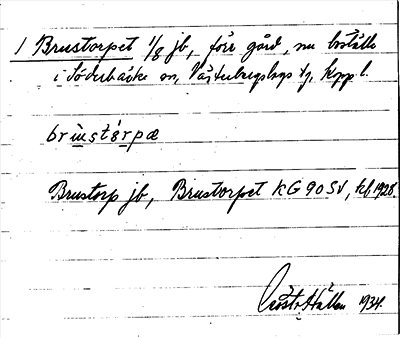 1 Brustorpet 1/8 jb, förr gård, nu boställe
i Söderbärke sn, Västerbergslags tg, Kopp l.
brùstɔ̀rpæ
Brustorp jb, Brustorpet KG 90 SV, kbf 1928.
Gösta Hållen 1934.